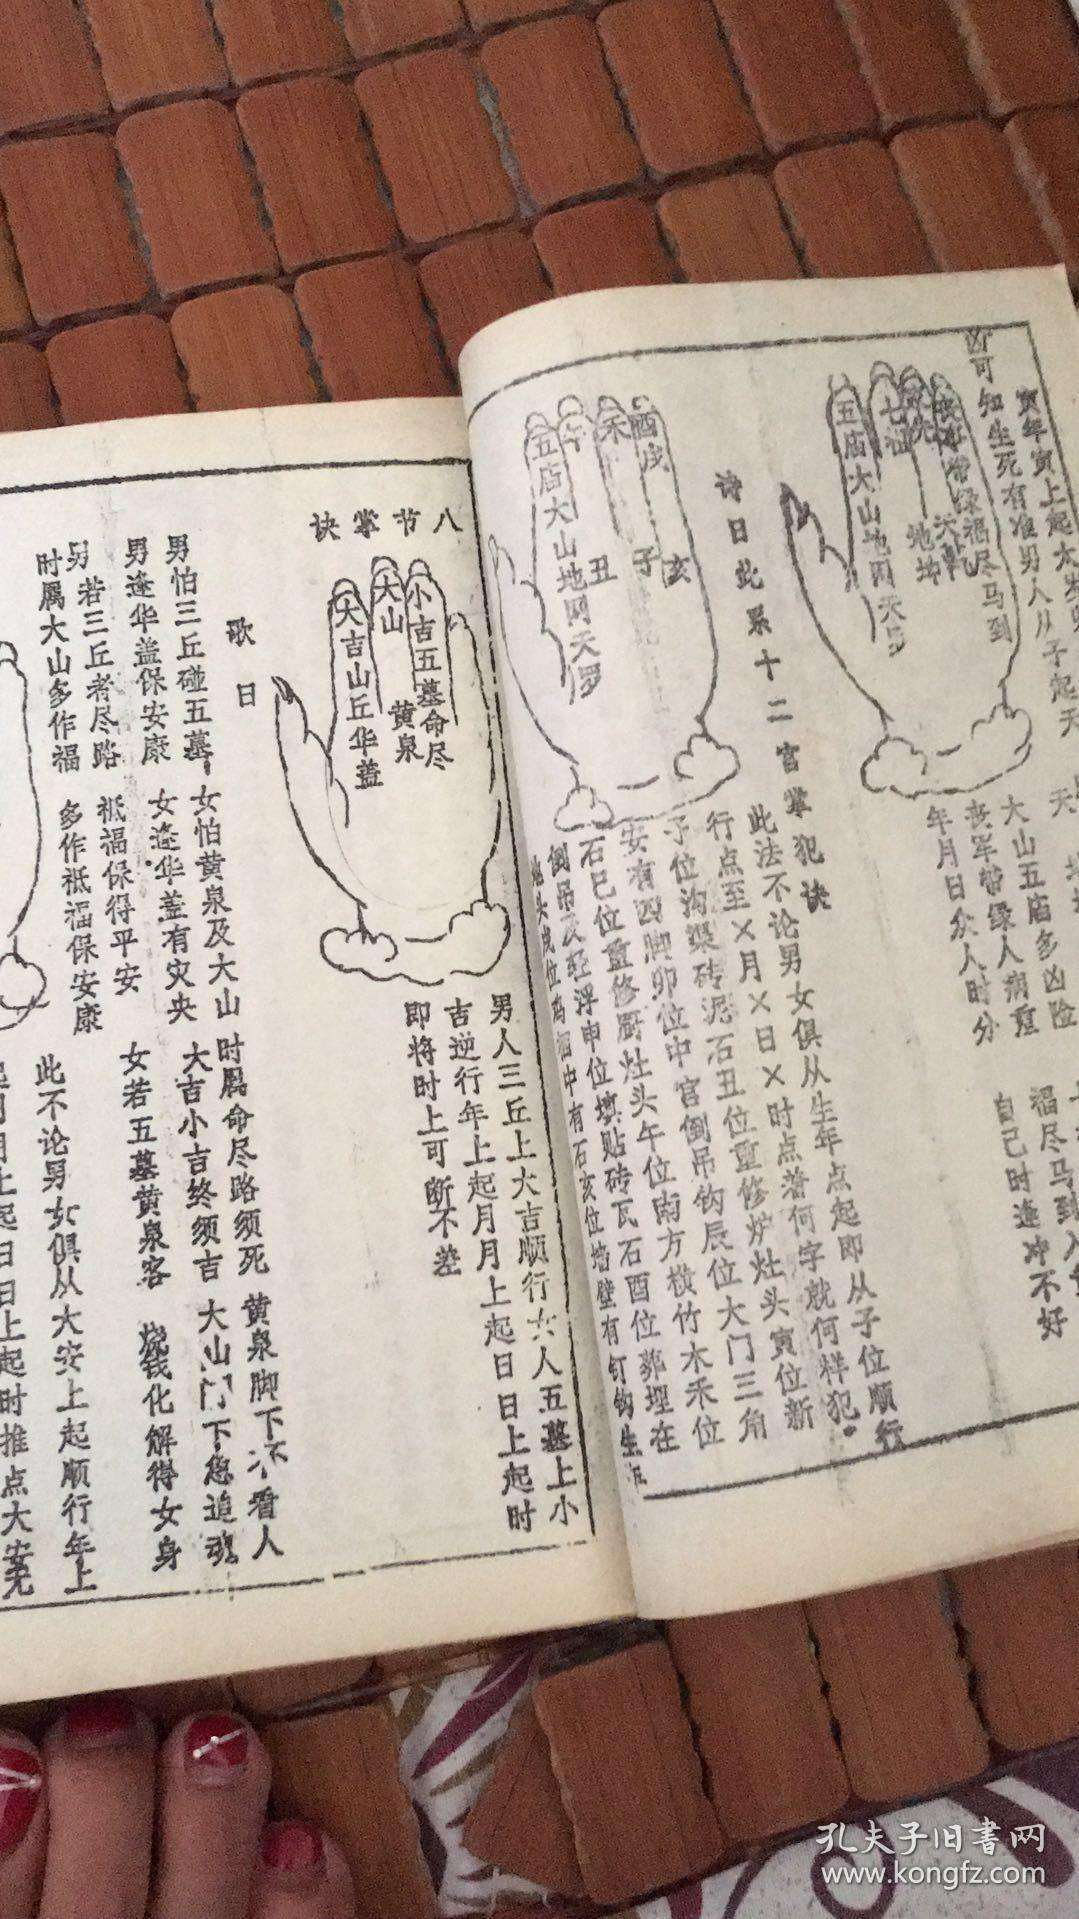 寅年寅上起太岁
凶可知生死有准男人从子起天
禄福尽马到
五庙大山地网天罗
大山五庙多凶险
丧军带缘人病重
年月日众人时分
福尽马到入
自己时逢冲不好
诗曰此系十二宫掌犯诀
酉戌
亥
子
丑
五庙大山地网天罗
此法不论男女俱从生年点起即从子位顺行
行点至×月×日×时点着何字就何样犯。
子位沟渠砖泥石丑位重修炉灶头寅位新
安有四脚卯位中宫倒吊钩辰位大门三角
石巳位重修厨灶头午位南方横竹木禾位
倒吊及轻浮申位填贴砖瓦石酉位葬埋在
中有石亥位墙壁有钉钩生
八节掌诀
小吉五墓命尽
大山
黄泉
大吉山丘华盖
男人三丘上大吉顺行女人五墓上小
吉逆行年上起月月上起日日上起时
即将时上可断不差
歌曰
男怕三丘碰五墓
女怕黄泉及大山
时属命尽路须死
黄泉脚下不看人
男逢华盖保安康
女逢华盖有灾央
大吉小吉终须吉
大山门下急追魂。
另若三丘者尽路
祗福保得平安
女若五墓黄泉客
烧钱化解得女身
时属大山多作福
多作祗福保安康
此不论男女俱从大安上起顺行年上
起月月上起日日上起时推点大安无
孔夫子旧书网
www.kongfz.com